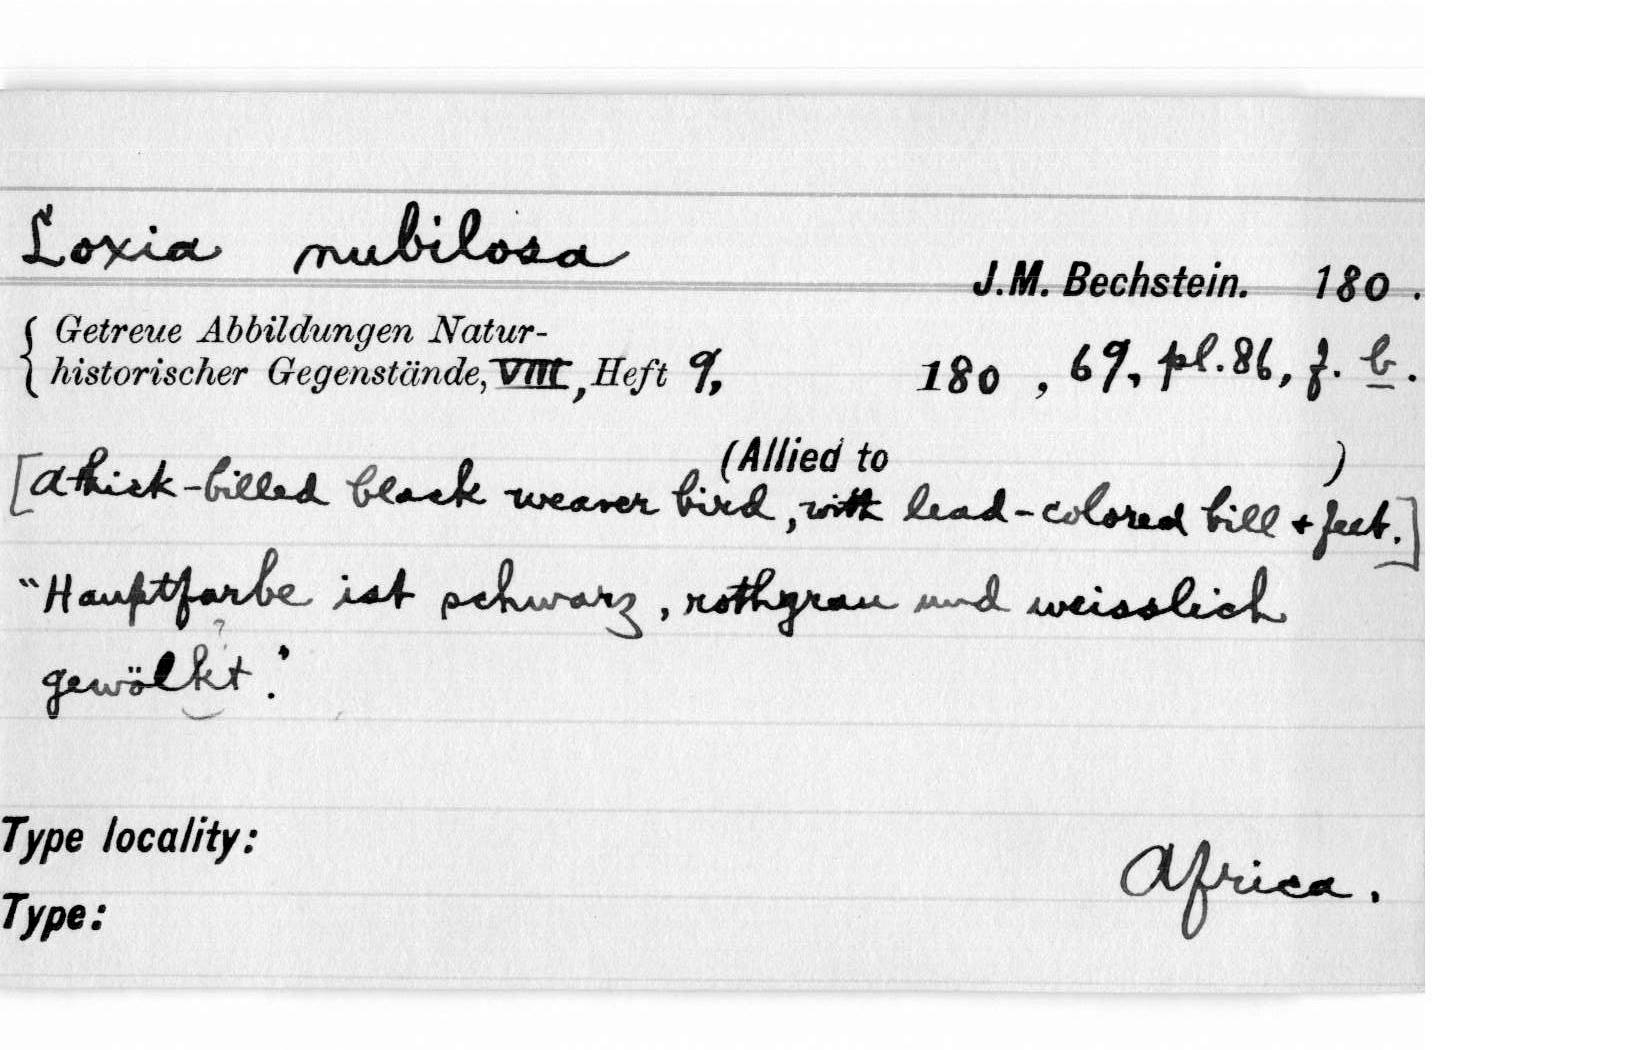 Loxia nubilosa
J.M. Bechstein. 180 .
Getreue Abbildungen Natur-
historischer Gegenstände, VIII, Heft 9, 180 , 69, pl. 86, f. b.
(Allied to )
[A thick-billed black weaver bird, with lead-colored bill + feet.]
"Hauptfarbe ist schwarz, rothgrau und weisslich
?
gewölkt."
Type locality:
Africa.
Type: